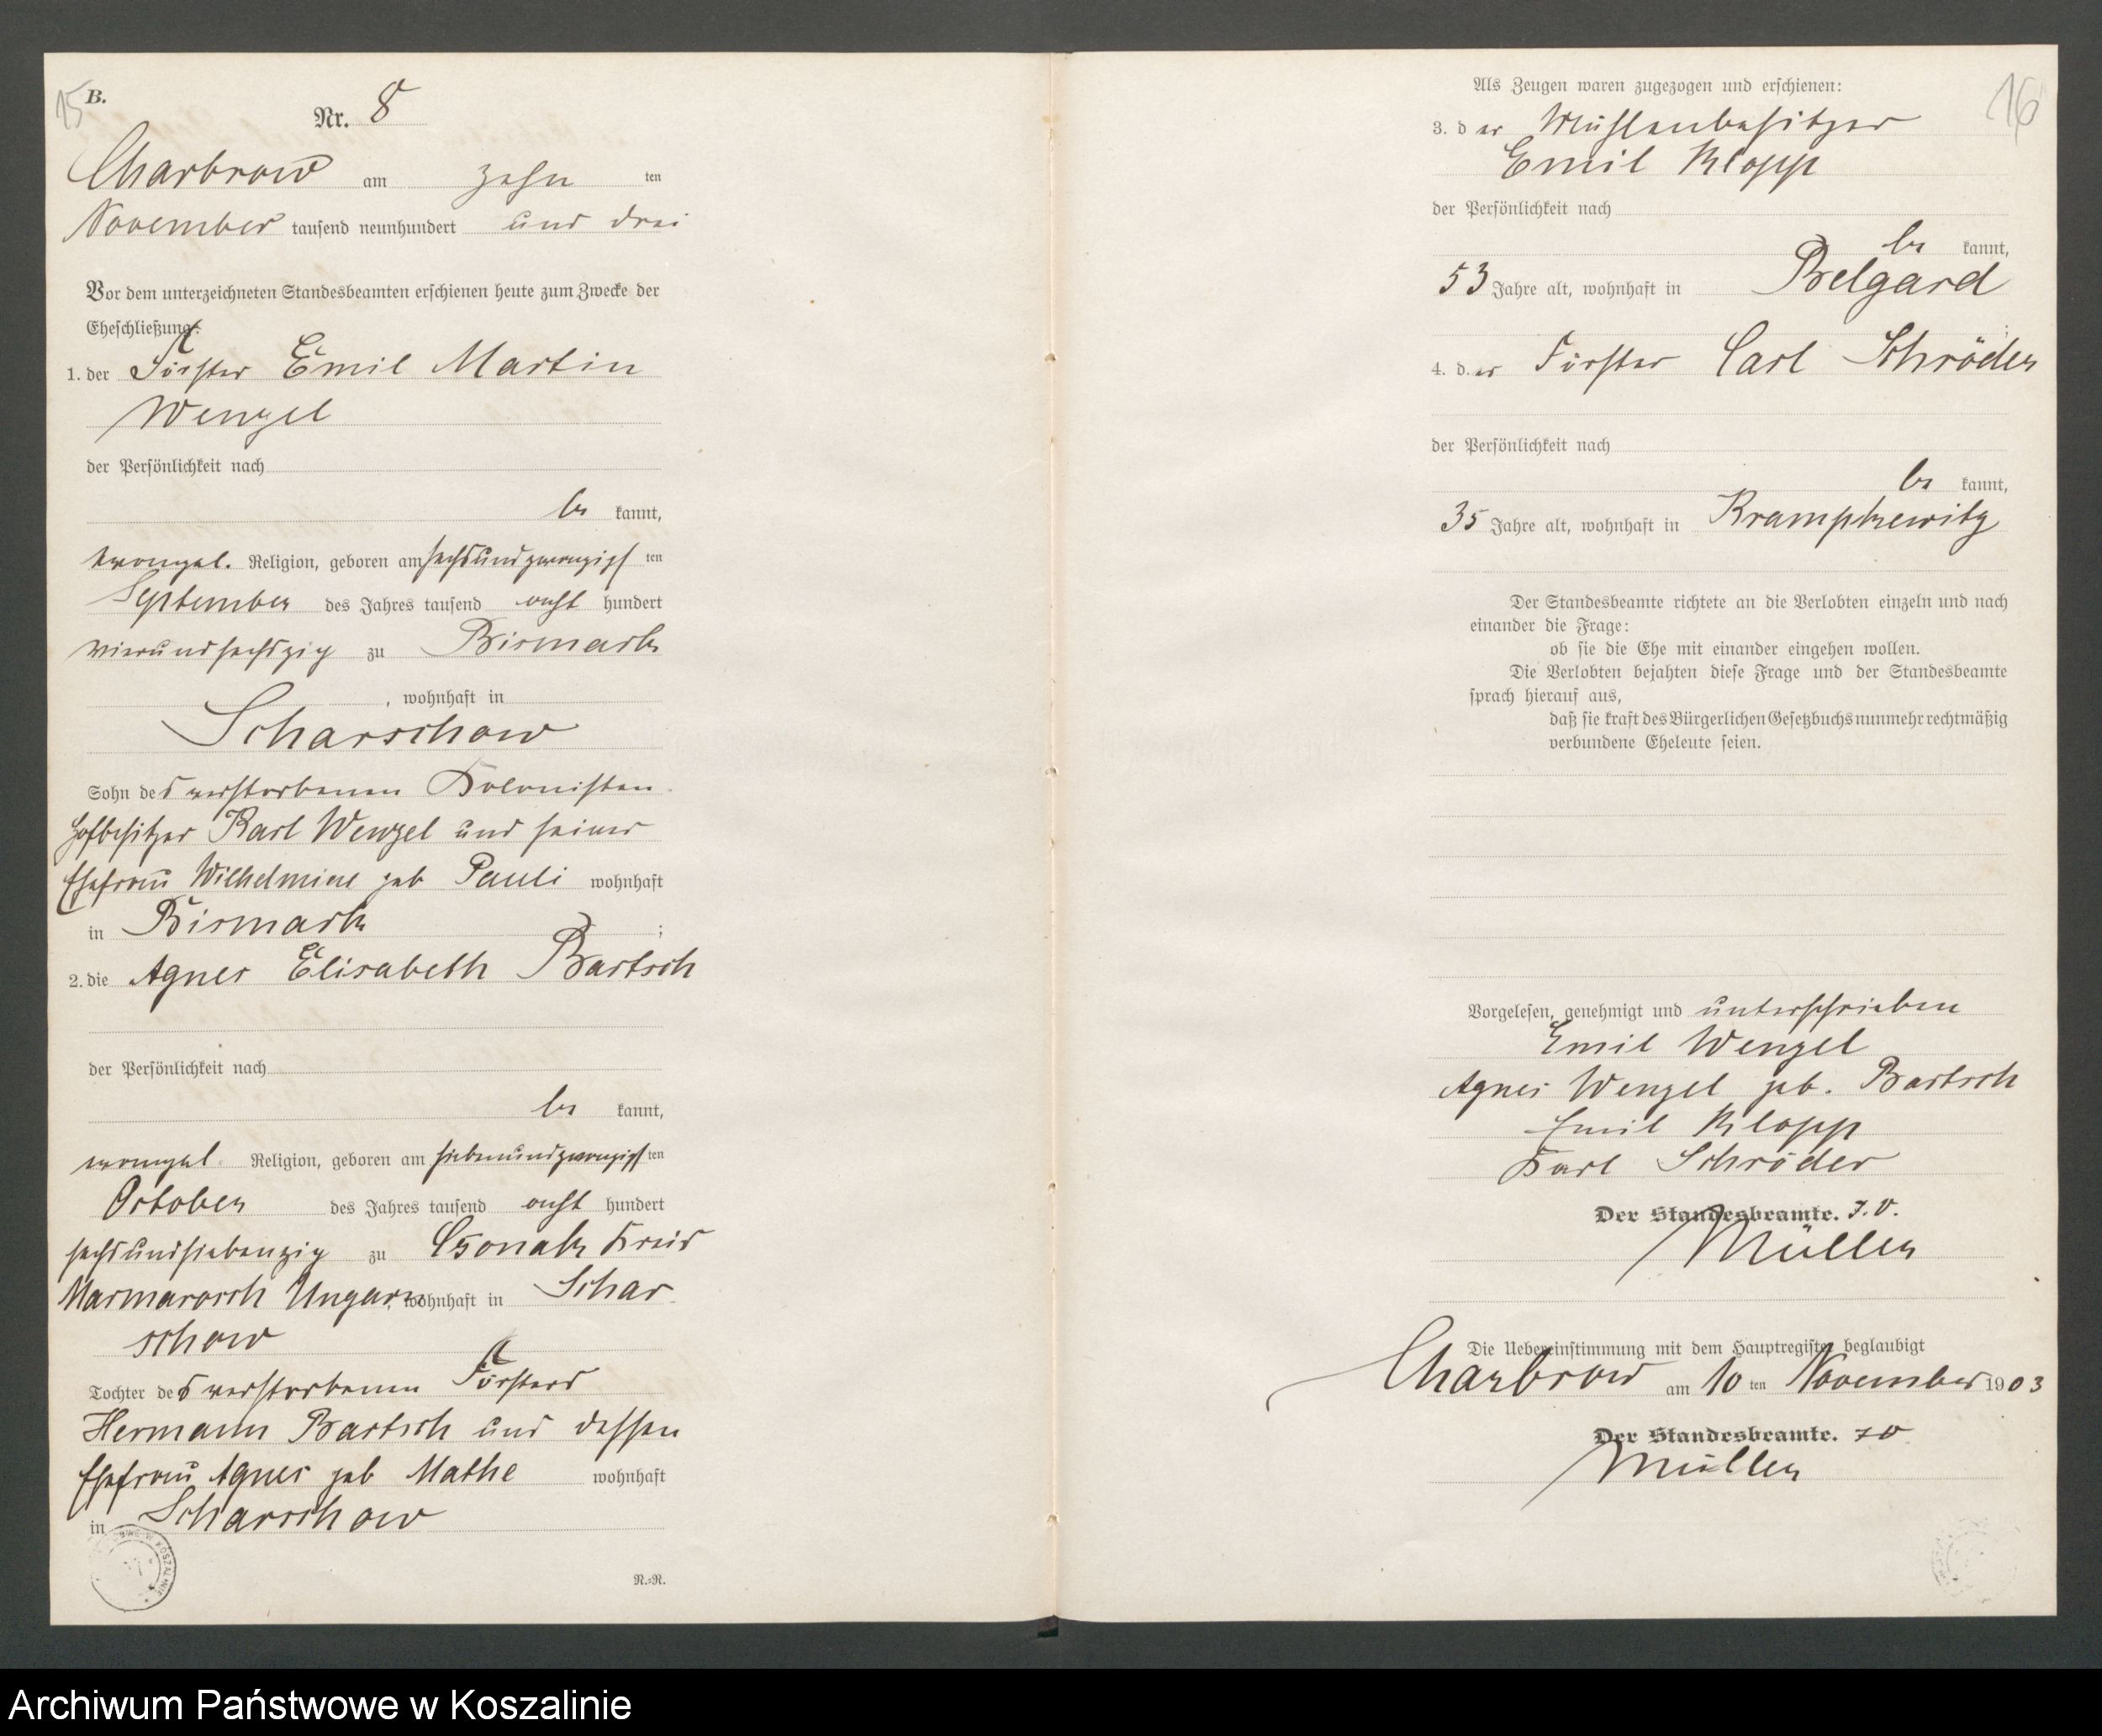 15
B.
Nr. 8
Charbrow am zehn ten
November tausend neunhundert und drei
Vor dem unterzeichneten Standesbeamten erschienen heute zum Zwecke der
Eheschließung:
1. der Förster Emil Martin
Wenzel
der Persönlichkeit nach
be kannt,
evangel. Religion, geboren am sechsundzwanzigsten
September des Jahres tausend acht hundert
vierundsechszig zu Bismark
, wohnhaft in
Scharschow
Sohn des verstorbenen Kolonisten
Hofbesitzer Karl Wenzel und seiner
Ehefrau Wilhelmine geb Pauli wohnhaft
in Bismark ;
2. die Agnes Elisabeth Bartsch
der Persönlichkeit nach
be kannt,
evangel. Religion, geboren am siebenundzwanzigsten
October des Jahres tausend acht hundert
sechsundsiebenzig zu Csonak Kreis
Marmarosch Ungarn, wohnhaft in Schar
schow
Tochter des verstorbenen Försters
Hermann Bartsch und dessen
Ehefrau Agnes geb Mathe wohnhaft
in Scharschow
R.=R.
16
Als Zeugen waren zugezogen und erschienen:
3. der Mühlenbesitzer
Emil Klopp
der Persönlichkeit nach
be kannt,
53 Jahre alt, wohnhaft in Belgard
4. der Förster Carl Schröder
der Persönlichkeit nach
be kannt,
35 Jahre alt, wohnhaft in Kramphewitz
Der Standesbeamte richtete an die Verlobten einzeln und nach
einander die Frage:
ob sie die Ehe mit einander eingehen wollen.
Die Verlobten bejahten diese Frage und der Standesbeamte
sprach hierauf aus,
daß sie kraft des Bürgerlichen Gesetzbuchs nunmehr rechtmäßig
verbundene Eheleute seien.
Vorgelesen, genehmigt und unterschrieben
Emil Wenzel
Agnes Wenzel geb. Bartsch
Emil Klopp
Karl Schröder
Der Standesbeamte. J.V.
Müller
Die Uebereinstimmung mit dem Hauptregister beglaubigt
Charbrow am 10 ten November 1903
Der Standesbeamte. JV
Müller
Archiwum Państwowe w Koszalinie